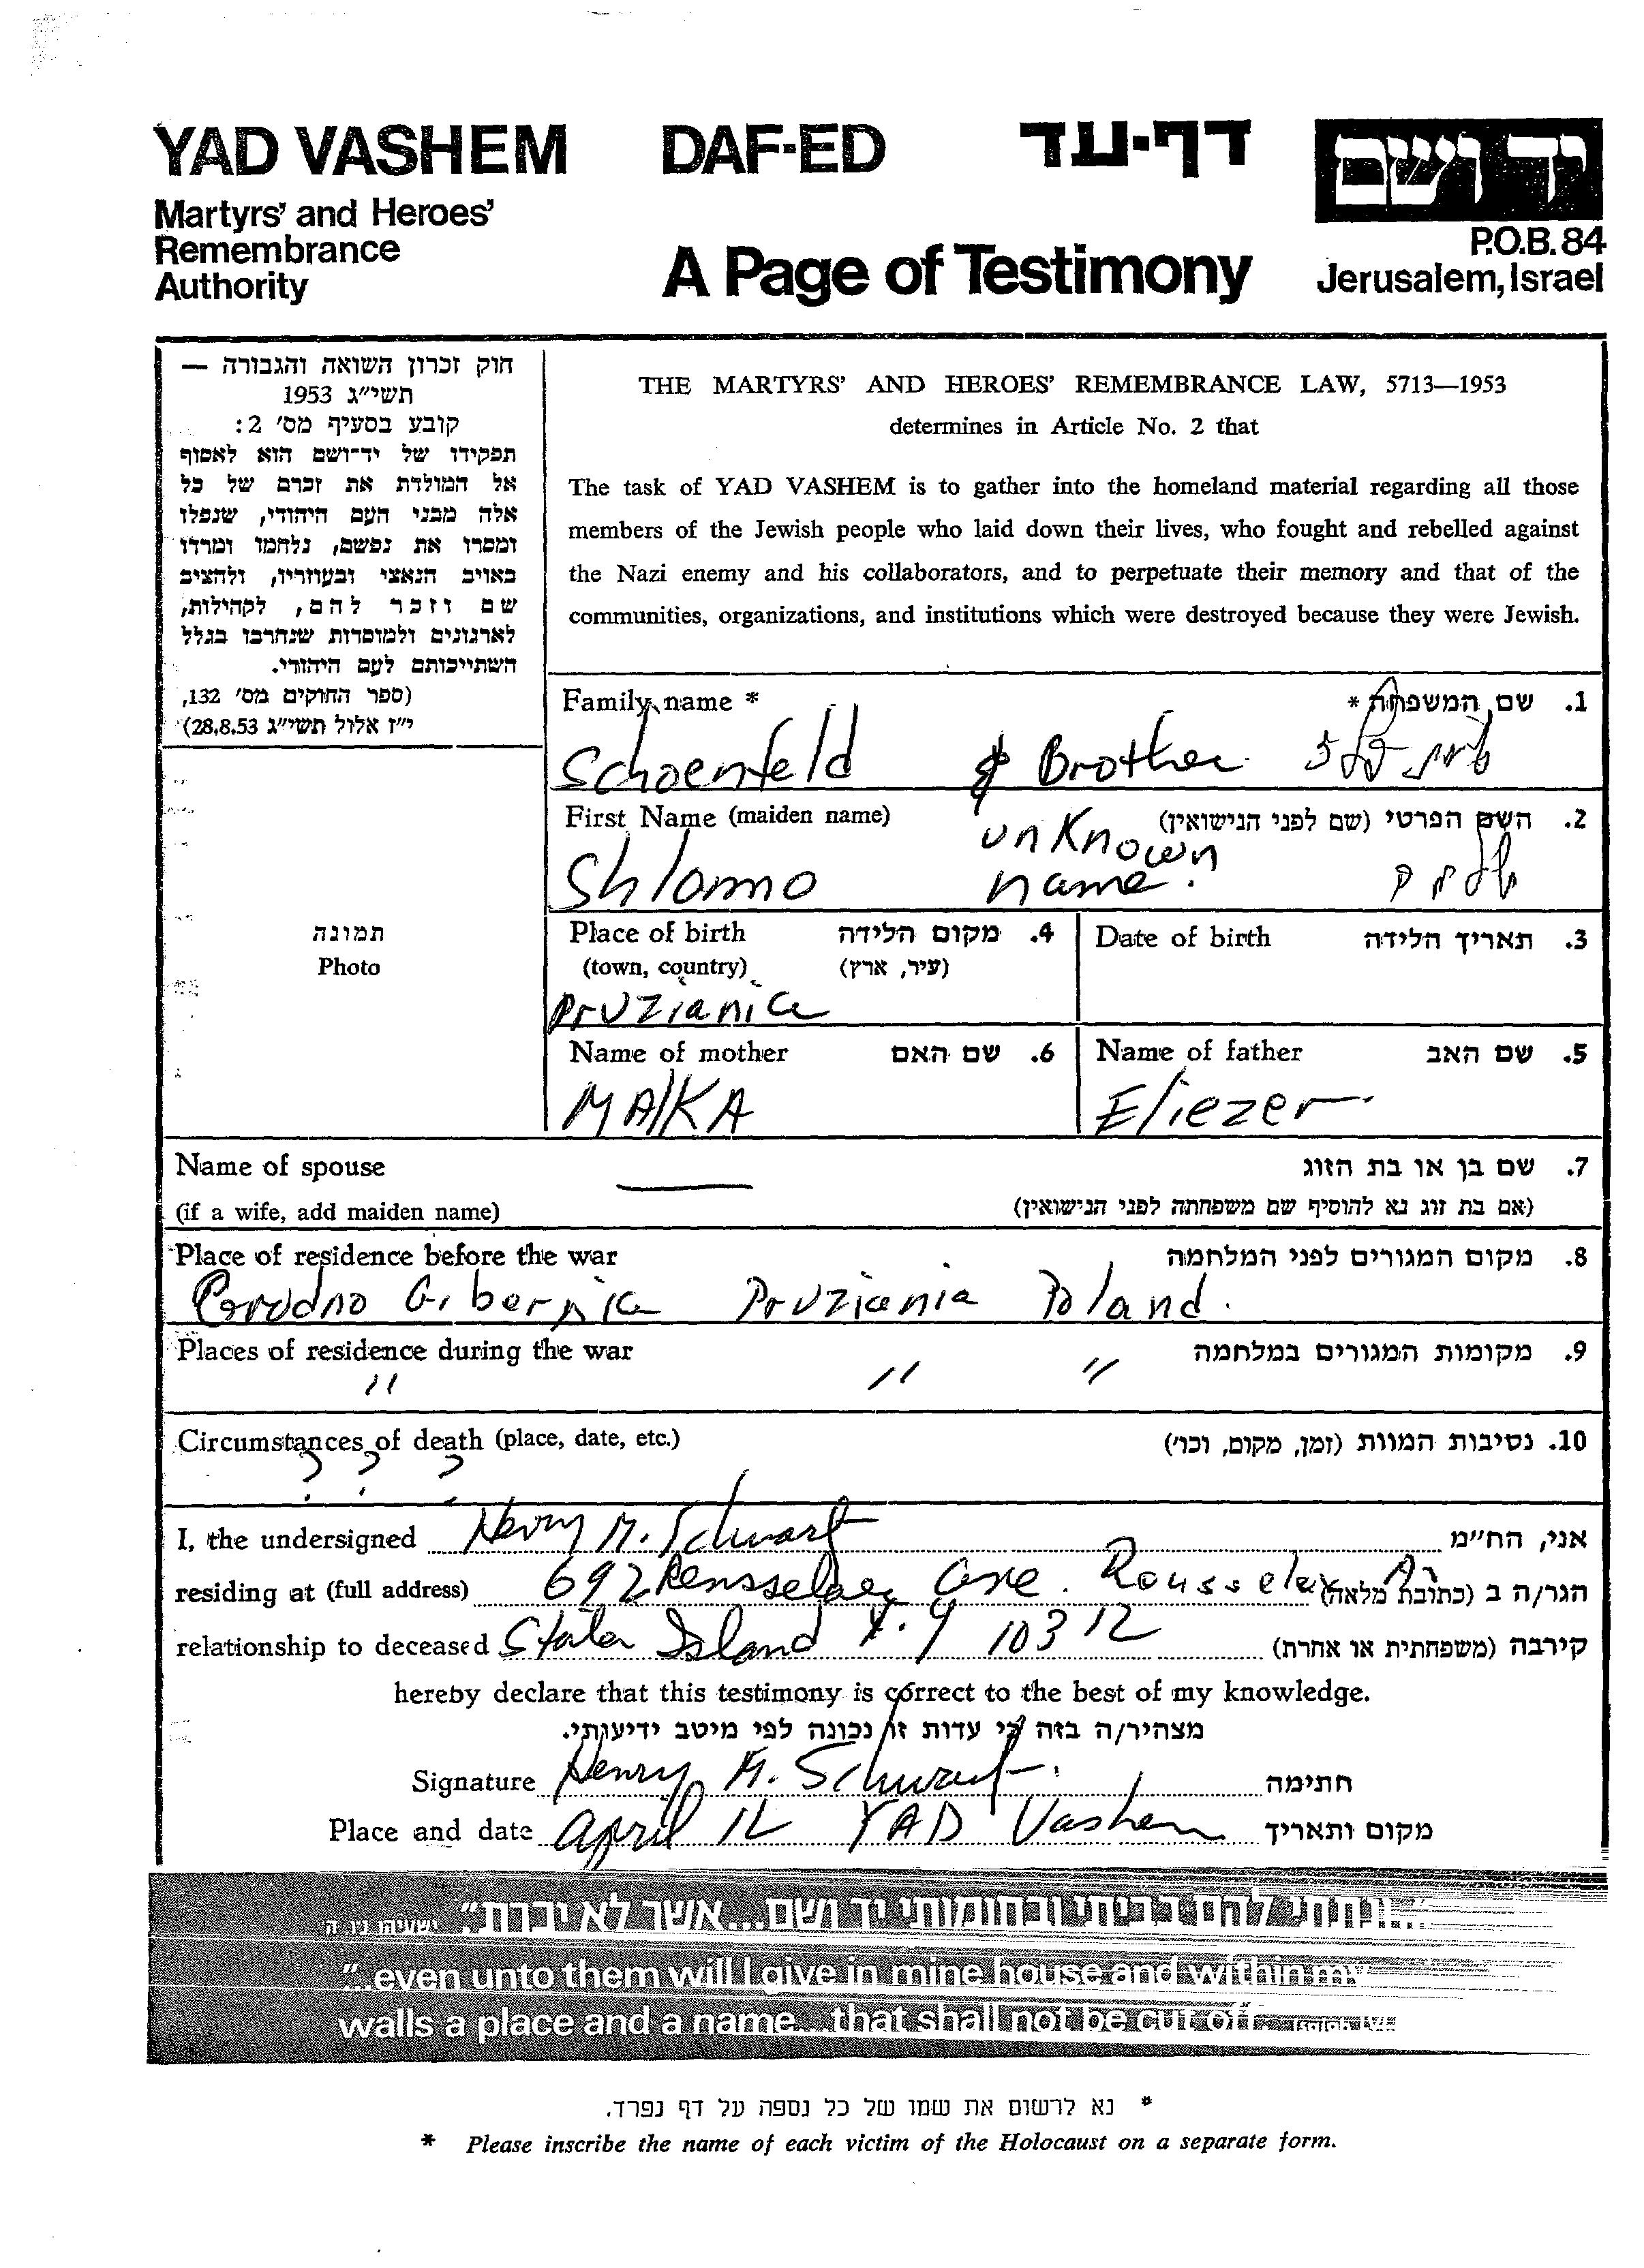 YAD VASHEM DAF-ED דף-עד ידושם
Martyrs' and Heroes'
Remembrance
Authority
A Page of Testimony
P.O.B. 84
Jerusalem, Israel
חוק זכרון השואה והגבורה —
תשי״ג 1953
קובע בסעיף מס׳ 2:
תפקידו של יד־ושם הוא לאסוף
אל המולדת את זכרם של כל
אלה מבני העם היהודי, שנפלו
ומסרו את נפשם, נלחמו ומרדו
באויב הנאצי ובעוזריו, ולהציב
שם וזכר להם, לקהילות,
לארגונים ולמוסדות שנחרבו בגלל
השתייכותם לעם היהודי.
(ספר החוקים מס׳ 132,
י״ז אלול תשי״ג 28.8.53)
THE MARTYRS' AND HEROES' REMEMBRANCE LAW, 5713—1953
determines in Article No. 2 that
The task of YAD VASHEM is to gather into the homeland material regarding all those
members of the Jewish people who laid down their lives, who fought and rebelled against
the Nazi enemy and his collaborators, and to perpetuate their memory and that of the
communities, organizations, and institutions which were destroyed because they were Jewish.
Family name * 1. שם המשפחה *
Schoenfeld & Brother
First Name (maiden name) 2. השם הפרטי (שם לפני הנישואין)
unknown
Shlomo name.
תמונה
Photo
Place of birth 4. מקום הלידה
(town, country) (עיר, ארץ)
Pruzianica
Date of birth 3. תאריך הלידה
Name of mother 6. שם האם
MALKA
Name of father 5. שם האב
Eliezer
Name of spouse 7. שם בן או בת הזוג
(if a wife, add maiden name) (אם בת זוג נא להוסיף שם משפחתה לפני הנישואין)
Place of residence before the war 8. מקום המגורים לפני המלחמה
Grodno Gibernia Pruziania Poland.
Places of residence during the war 9. מקומות המגורים במלחמה
" " "
Circumstances of death (place, date, etc.) 10. נסיבות המוות (זמן, מקום, וכו׳)
? ? ?
I, the undersigned Henry M. Schwartz אני, הח״מ
residing at (full address) 692 Rensselaer Ave. הגר/ה ב (כתובת מלאה)
relationship to deceased Staten Island N.Y 10312 קירבה (משפחתית או אחרת)
hereby declare that this testimony is correct to the best of my knowledge.
מצהיר/ה בזה כי עדות זו נכונה לפי מיטב ידיעותי.
Signature Henry M. Schwartz חתימה
Place and date April 12 YAD Vashem מקום ותאריך
״...ונתתי להם בביתי ובחומותי יד ושם...אשר לא יכרת״. ישעיהו נו, ה׳
"...even unto them will I give in mine house and within my
walls a place and a name...that shall not be cut off."
* נא לרשום את שמו של כל נספה על דף נפרד.
* Please inscribe the name of each victim of the Holocaust on a separate form.